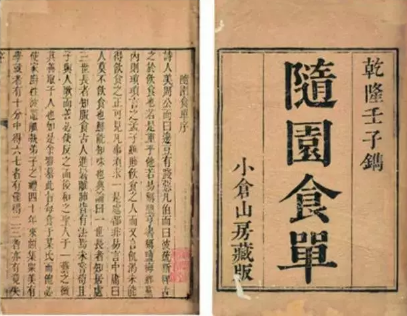 乾隆壬子鐫
隨園食單
小倉山房藏版
隨園食單序
詩人美周公而曰籩豆有踐惡凡伯而曰彼疏斯稗古
之於飲食也若是重乎他若易稱鼎烹書稱鹽梅鄉黨
內則瑣瑣言之孟子雖賤飲食之人而又言飢渴未能
得飲食之正可見凡事須求一是處都非易言中庸曰
人莫不飲食也鮮能知味也典論曰一世長者知居處
三世長者知服食古人進鬐離肺皆有法焉未嘗苟且
子與人歌而善必使反之而後和之聖人於一藝之微
其善取於人也如是余雅慕此旨每食於某氏而飽必
使家廚往彼竈觚執弟子之禮四十年來頗集衆美有
學就者有十分中得六七者有僅得二三者亦有竟失